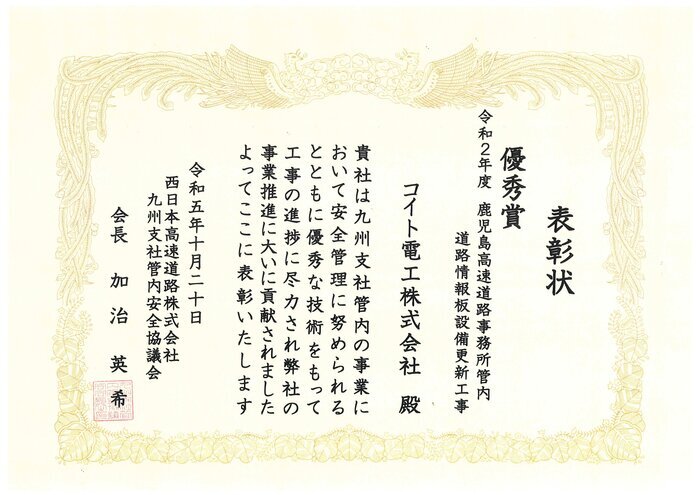 表彰状
優秀賞
令和2年度 鹿児島高速道路事務所管内
道路情報板設備更新工事
コイト電工株式会社 殿
貴社は九州支社管内の事業に
おいて安全管理に努められる
とともに優秀な技術をもって
工事の進捗に尽力され弊社の
事業推進に大いに貢献されました
よってここに表彰いたします
令和五年十月二十日
西日本高速道路株式会社
九州支社管内安全協議会
会長 加治 英希